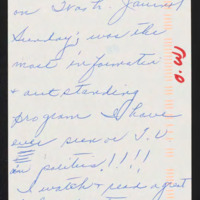 on Wash. Journal
Sunday, was the
most informative
& outstanding
program I have
ever seen on T.V.
in politics!!!!
I watch & read a great